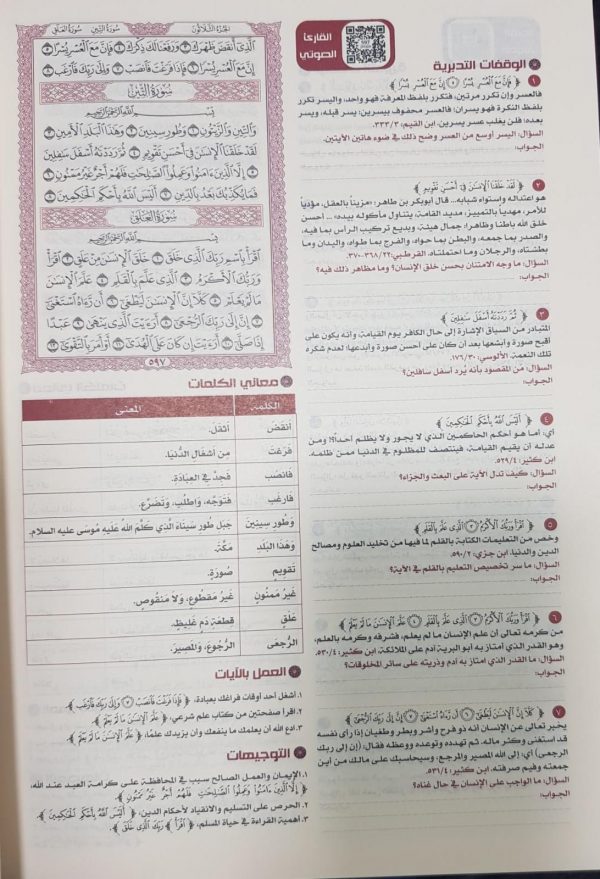 الجزء الثلاثون سورة التين سورة العلق
الَّذِي أَنقَضَ ظَهْرَكَ ٣ وَرَفَعْنَا لَكَ ذِكْرَكَ ٤ فَإِنَّ مَعَ الْعُسْرِ يُسْرًا ٥
إِنَّ مَعَ الْعُسْرِ يُسْرًا ٦ فَإِذَا فَرَغْتَ فَانصَبْ ٧ وَإِلَىٰ رَبِّكَ فَارْغَب ٨
سُورَةُ التِّينِ
بِسْمِ اللَّهِ الرَّحْمَٰنِ الرَّحِيمِ
وَالتِّينِ وَالزَّيْتُونِ ١ وَطُورِ سِينِينَ ٢ وَهَٰذَا الْبَلَدِ الْأَمِينِ ٣
لَقَدْ خَلَقْنَا الْإِنسَانَ فِي أَحْسَنِ تَقْوِيمٍ ٤ ثُمَّ رَدَدْنَاهُ أَسْفَلَ سَافِلِينَ
٥ إِلَّا الَّذِينَ آمَنُوا وَعَمِلُوا الصَّالِحَاتِ فَلَهُمْ أَجْرٌ غَيْرُ مَمْنُونٍ
٦ فَمَا يُكَذِّبُكَ بَعْدُ بِالدِّينِ ٧ أَلَيْسَ اللَّهُ بِأَحْكَمِ الْحَاكِمِينَ ٨
سُورَةُ العَلَقِ
بِسْمِ اللَّهِ الرَّحْمَٰنِ الرَّحِيمِ
اقْرَأْ بِاسْمِ رَبِّكَ الَّذِي خَلَقَ ١ خَلَقَ الْإِنسَانَ مِنْ عَلَقٍ ٢ اقْرَأْ
وَرَبُّكَ الْأَكْرَمُ ٣ الَّذِي عَلَّمَ بِالْقَلَمِ ٤ عَلَّمَ الْإِنسَانَ
مَا لَمْ يَعْلَمْ ٥ كَلَّا إِنَّ الْإِنسَانَ لَيَطْغَىٰ ٦ أَن رَّآهُ اسْتَغْنَىٰ
٧ إِنَّ إِلَىٰ رَبِّكَ الرُّجْعَىٰ ٨ أَرَأَيْتَ الَّذِي يَنْهَىٰ ٩ عَبْدًا
إِذَا صَلَّىٰ ١٠ أَرَأَيْتَ إِن كَانَ عَلَى الْهُدَىٰ ١١ أَوْ أَمَرَ بِالتَّقْوَىٰ ١٢
٥٩٧
القارئ
الصوتي
الوقفات التدبرية
١ ﴿ فَإِنَّ مَعَ الْعُسْرِ يُسْرًا ٥ إِنَّ مَعَ الْعُسْرِ يُسْرًا ﴾
فالعسر وإن تكرر مرتين، فتكرر بلفظ المعرفة فهو واحد، واليسر تكرر
بلفظ النكرة فهو يسران؛ فالعسر محفوف بيسرين: يسر قبله، ويسر
بعده؛ فلن يغلب عسر يسرين. ابن القيم: ٣٣٣/٣.
السؤال: اليسر أوسع من العسر وضح ذلك في ضوء هاتين الآيتين.
الجواب:
٢ ﴿ لَقَدْ خَلَقْنَا الْإِنسَانَ فِي أَحْسَنِ تَقْوِيمٍ ﴾
هو اعتداله واستواء شبابه... قال أبوبكر بن طاهر: «مزيناً بالعقل، مؤدياً
للأمر، مهدياً بالتمييز، مديد القامة، يتناول مأكوله بيده» ... أحسن
خلق الله باطنا وظاهرا؛ جمال هيئة، وبديع تركيب الرأس بما فيه،
والصدر بما جمعه، والبطن بما حواه، والفرج بما طواه، واليدان وما
بطشتاه، والرجلان وما احتملتاه. القرطبي:٣٦٨/٢٢-٣٧٠.
السؤال: ما وجه الامتنان بحسن خلق الإنسان؟ وما مظاهر ذلك فيه؟
الجواب:
٣ ﴿ ثُمَّ رَدَدْنَاهُ أَسْفَلَ سَافِلِينَ ﴾
المتبادر من السياق الإشارة إلى حال الكافر يوم القيامة، وأنه يكون على
أقبح صورة وأبشعها بعد أن كان على أحسن صورة وأبدعها؛ لعدم شكره
تلك النعمة. الألوسي: ١٧٦/٣٠.
السؤال: من المقصود بأنه يُرد أسفل سافلين؟
الجواب:
٤ ﴿ أَلَيْسَ اللَّهُ بِأَحْكَمِ الْحَاكِمِينَ ﴾
أي: أما هو أحكم الحاكمين الذي لا يجور ولا يظلم أحدا؟! ومن
عدله أن يقيم القيامة، فينتصف للمظلوم في الدنيا ممن ظلمه.
ابن كثير: ٥٢٩/٤.
السؤال: كيف تدل الآية على البعث والجزاء؟
الجواب:
٥ ﴿ اقْرَأْ وَرَبُّكَ الْأَكْرَمُ ٣ الَّذِي عَلَّمَ بِالْقَلَمِ ﴾
وخص من التعليمات الكتابة بالقلم لما فيها من تخليد العلوم ومصالح
الدين والدنيا. ابن جزي: ٥٩٠/٢.
السؤال: ما سر تخصيص التعليم بالقلم في الآية؟
الجواب:
٦ ﴿ اقْرَأْ وَرَبُّكَ الْأَكْرَمُ ٣ الَّذِي عَلَّمَ بِالْقَلَمِ ٤ عَلَّمَ الْإِنسَانَ مَا لَمْ يَعْلَمْ ﴾
من كرمه تعالى أن علم الإنسان ما لم يعلم، فشرفه وكرمه بالعلم،
وهو القدر الذي امتاز به أبو البرية آدم على الملائكة. ابن كثير: ٥٣٠/٤.
السؤال: ما القدر الذي امتاز به آدم وذريته على سائر المخلوقات؟
الجواب:
٧ ﴿ كَلَّا إِنَّ الْإِنسَانَ لَيَطْغَىٰ ٦ أَن رَّآهُ اسْتَغْنَىٰ ٧ إِنَّ إِلَىٰ رَبِّكَ الرُّجْعَىٰ ﴾
يخبر تعالى عن الإنسان أنه ذو فرح وأشر وبطر وطغيان إذا رأى نفسه
قد استغنى وكثر ماله. ثم تهدده وتوعده ووعظه فقال: (إن إلى ربك
الرجعى) أي: إلى الله المصير والمرجع، وسيحاسبك على مالك من أين
جمعته وفيم صرفته. ابن كثير: ٥٣١/٤.
السؤال: ما الواجب على الإنسان في حال غناه؟
الجواب:
معاني الكلمات
الكلمة المعنى
أَنقَضَ أَثْقَلَ.
فَرَغْتَ مِن أَشْغَالِ الدُّنْيَا.
فَانصَبْ فَجِدَّ فِي العِبَادَةِ.
فَارْغَب فَتَوَجَّه، وَاطْلُب، وَتَضَرَّع.
وَطُورِ سِينِينَ جَبَلِ طُورِ سَيْنَاءَ الَّذِي كَلَّمَ اللهُ عَلَيْهِ مُوسَى عليه السلام.
وَهَذَا البَلَدِ مَكَّةَ.
تَقْوِيمٍ صُورَةٍ.
غَيْرُ مَمْنُونٍ غَيْرُ مَقْطُوعٍ، وَلاَ مَنْقُوصٍ.
عَلَقٍ قِطْعَةِ دَمٍ غَلِيظٍ.
الرُّجْعَى الرُّجُوعَ، وَالمَصِيرَ.
العمل بالآيات
١. أشغل أحد أوقات فراغك بعبادة، ﴿ فَإِذَا فَرَغْتَ فَانصَبْ ٧ وَإِلَىٰ رَبِّكَ فَارْغَب ﴾
٢. اقرأ صفحتين من كتاب علم شرعي، ﴿ عَلَّمَ الْإِنسَانَ مَا لَمْ يَعْلَمْ ﴾
٣. ادع الله أن يعلمك ما ينفعك وأن يزيدك علما، ﴿ عَلَّمَ الْإِنسَانَ مَا لَمْ يَعْلَمْ ﴾
التوجيهات
١. الإيمان والعمل الصالح سبب في المحافظة على كرامة العبد عند الله،
﴿ إِلَّا الَّذِينَ آمَنُوا وَعَمِلُوا الصَّالِحَاتِ فَلَهُمْ أَجْرٌ غَيْرُ مَمْنُونٍ ﴾
٢. الحرص على التسليم والانقياد لأحكام الدين، ﴿ أَلَيْسَ اللَّهُ بِأَحْكَمِ الْحَاكِمِينَ ﴾
٣. أهمية القراءة في حياة المسلم، ﴿ اقْرَأْ بِاسْمِ رَبِّكَ الَّذِي خَلَقَ ﴾